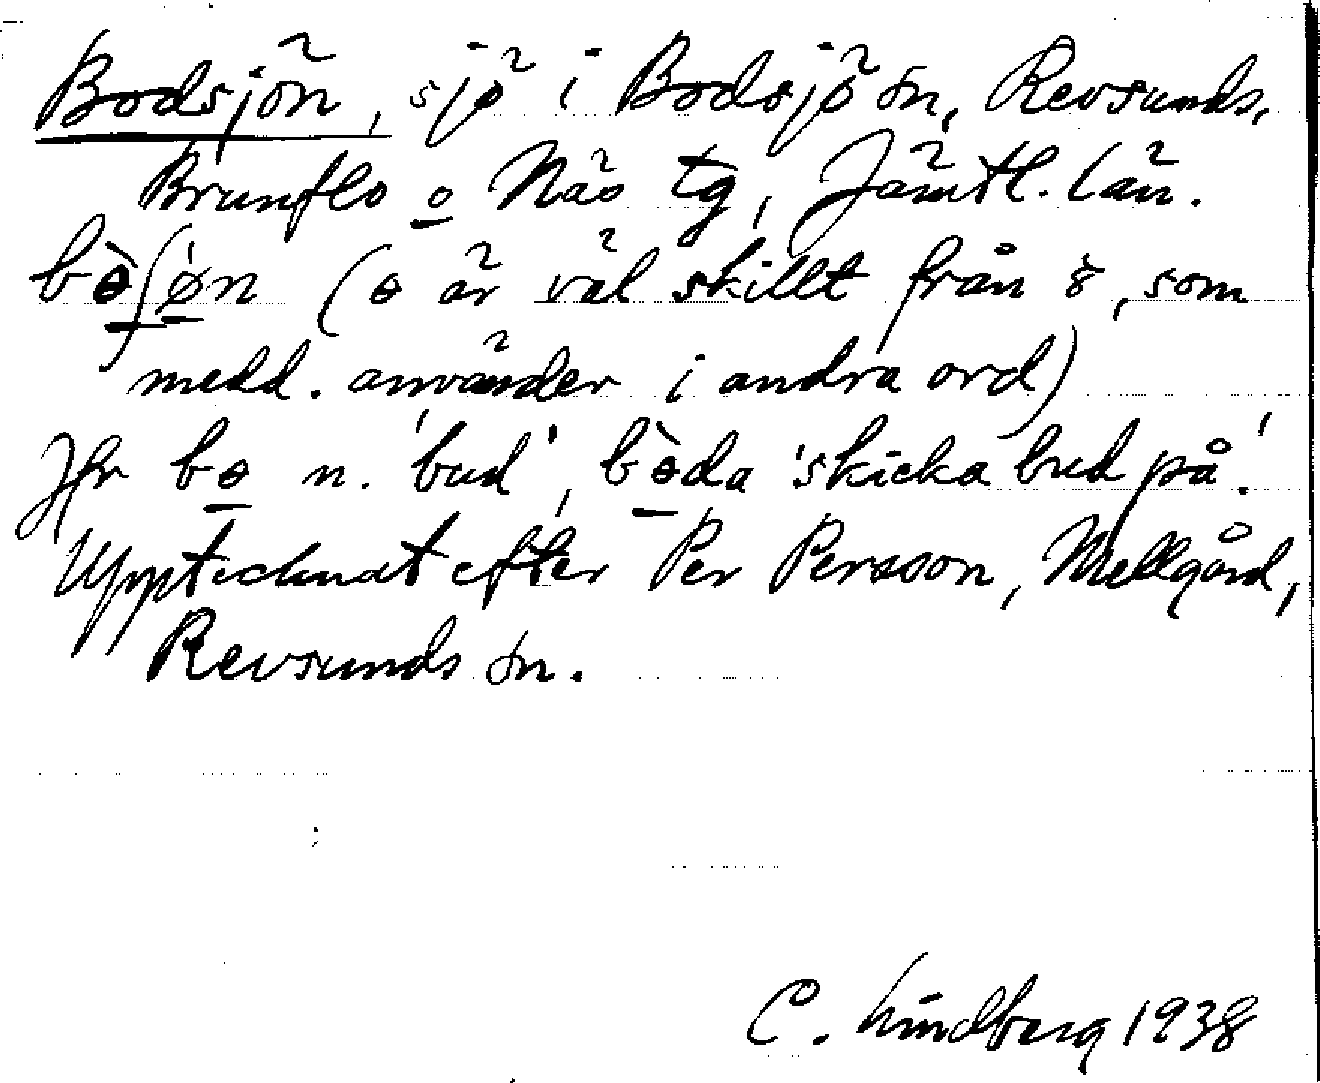 Bodsjön, sjö i Bodsjö sn, Revsunds,
Brunflo o Näs tg, Jämtl. län.
bɵ̀ʃøn (ɵ är väl skillt från 8, som
medd. använder i andra ord)
Jfr bɵ n. 'bud', bɵ̀da 'skicka bud på'.
Upptecknat efter Per Persson, Mellgård,
Revsunds sn.
C. Lindberg 1938